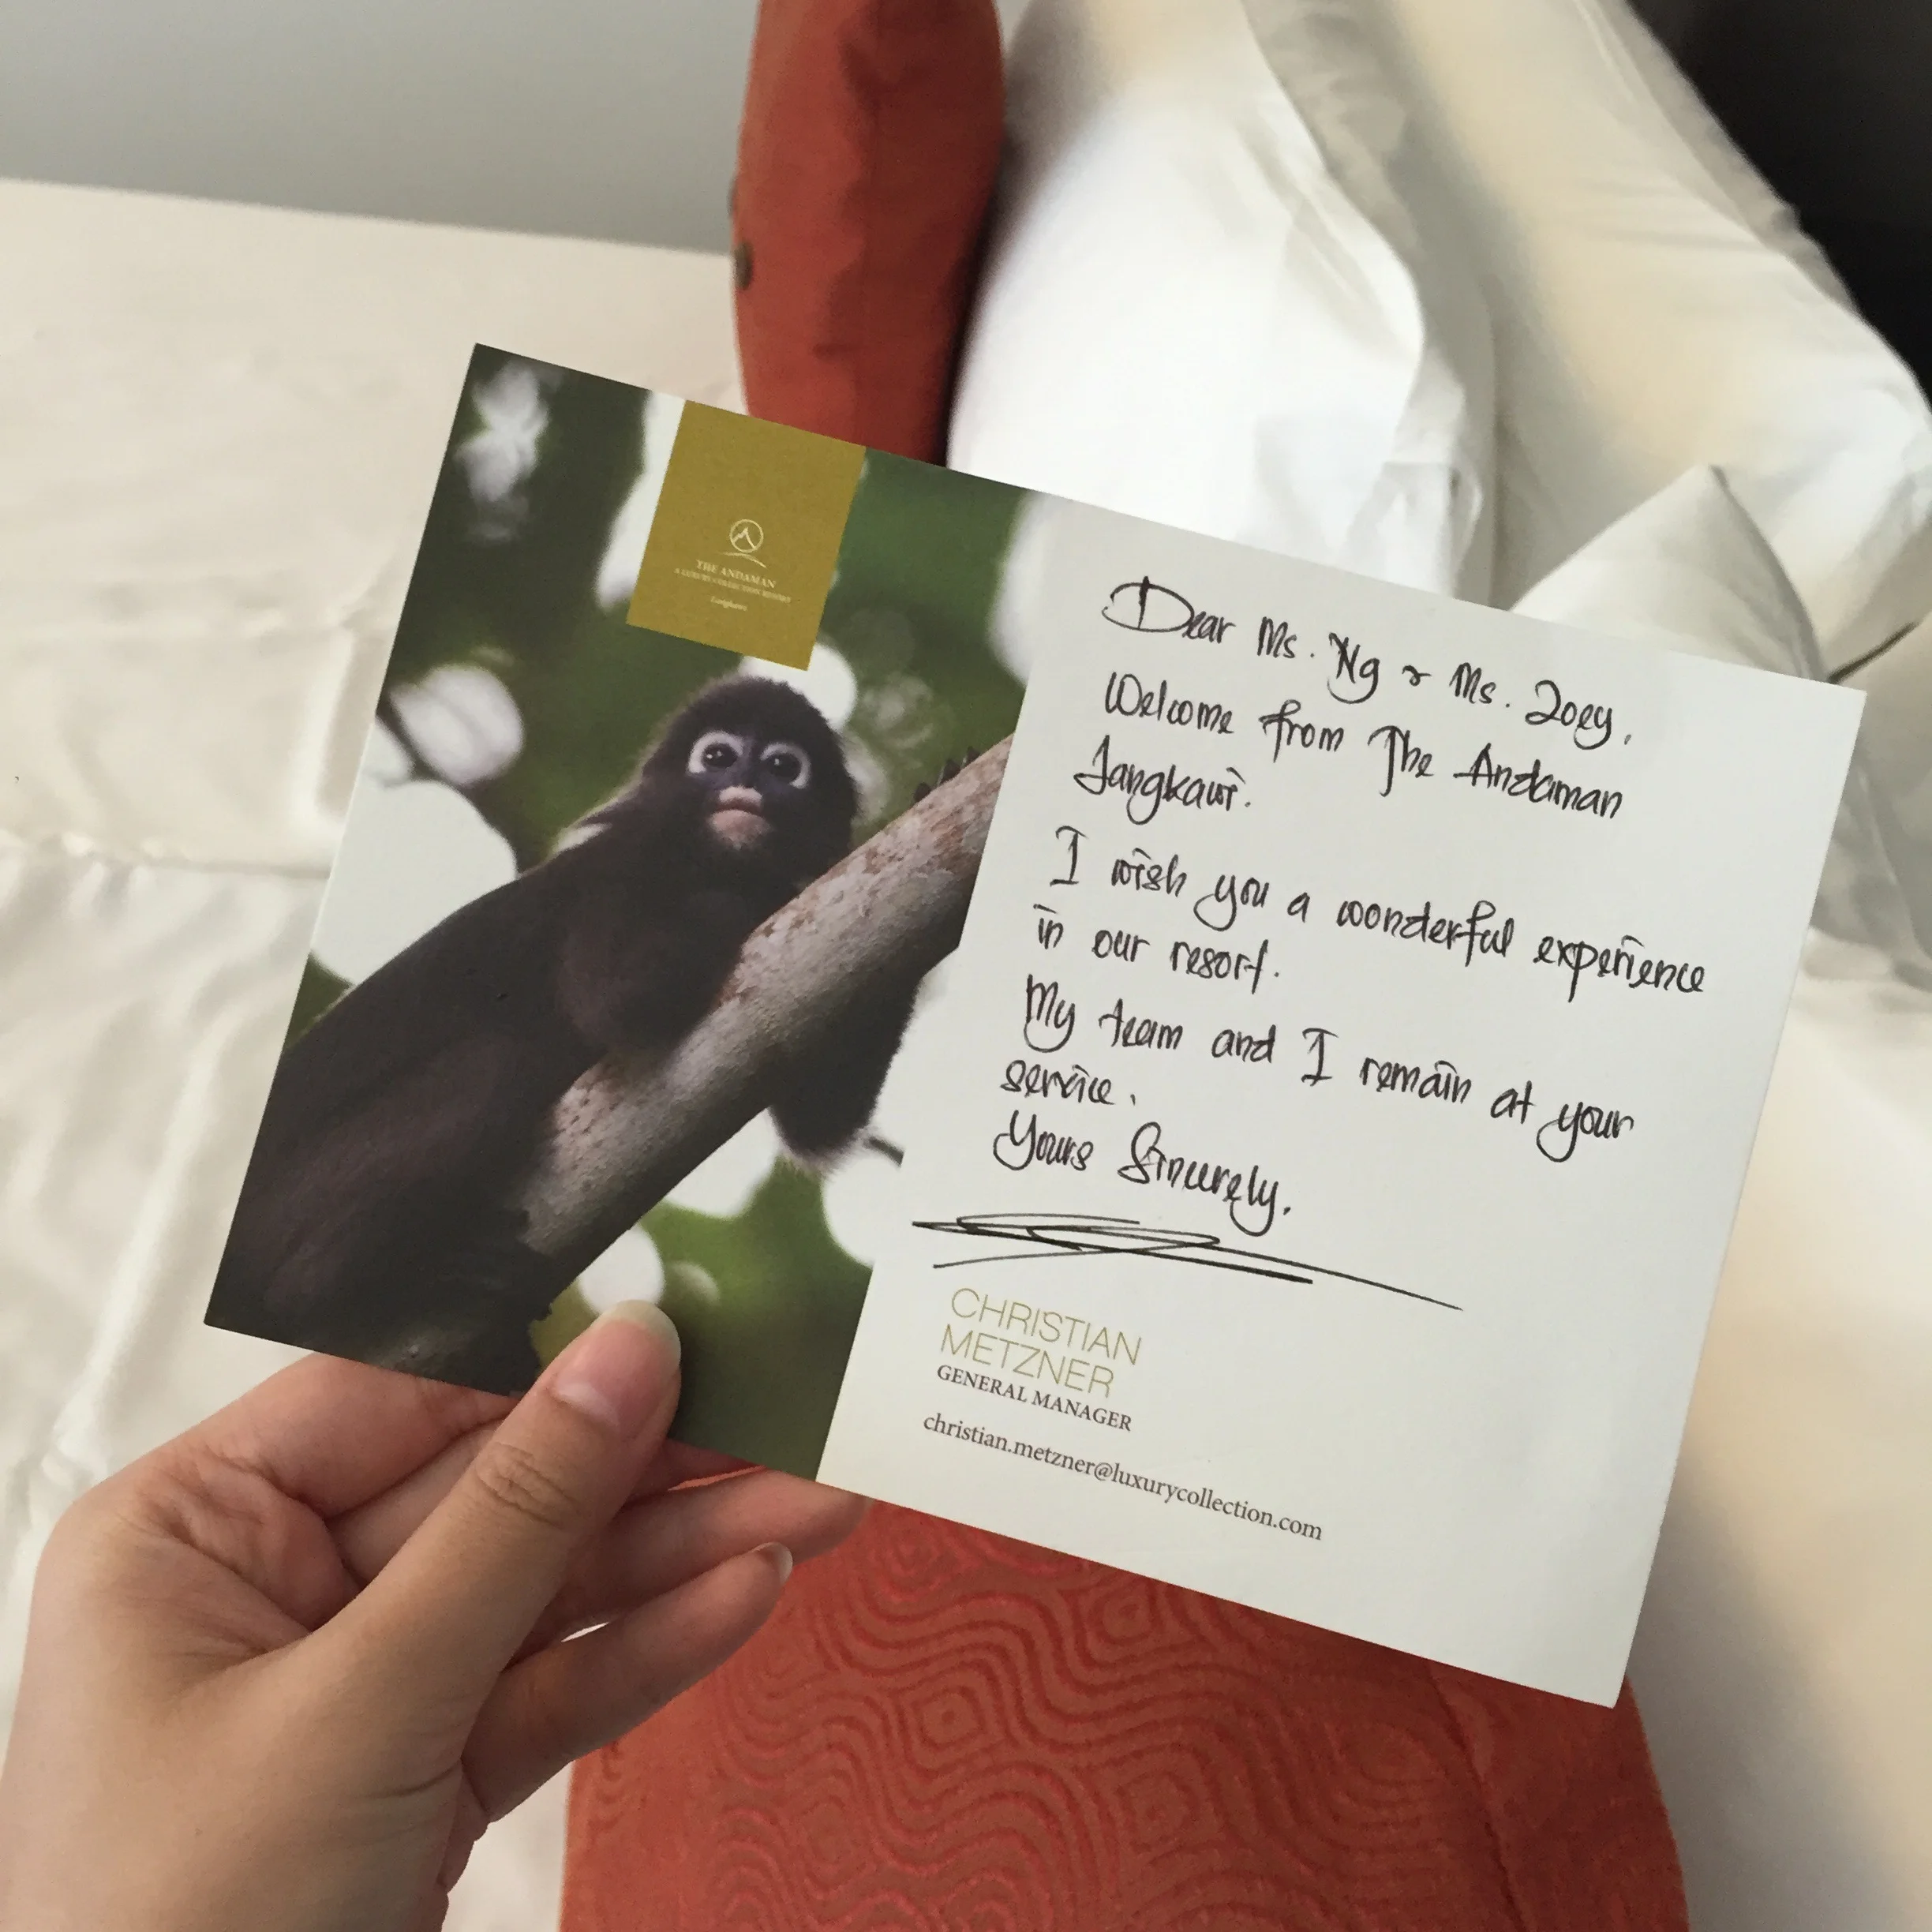 THE ANDAMAN
A LUXURY COLLECTION RESORT
Langkawi
Dear Ms. Ng & Ms. Joey,
Welcome from The Andaman
Langkawi.
I wish you a wonderful experience
in our resort.
My team and I remain at your
service.
Yours Sincerely,
CHRISTIAN
METZNER
GENERAL MANAGER
christian.metzner@luxurycollection.com